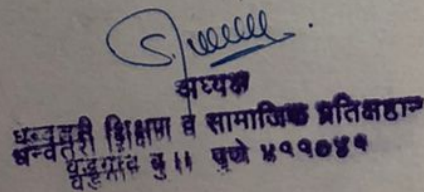 अध्यक्ष
धन्वंतरी शिक्षण व सामाजिक प्रतिष्ठान
वडगाव बु॥ पुणे ४११०४१